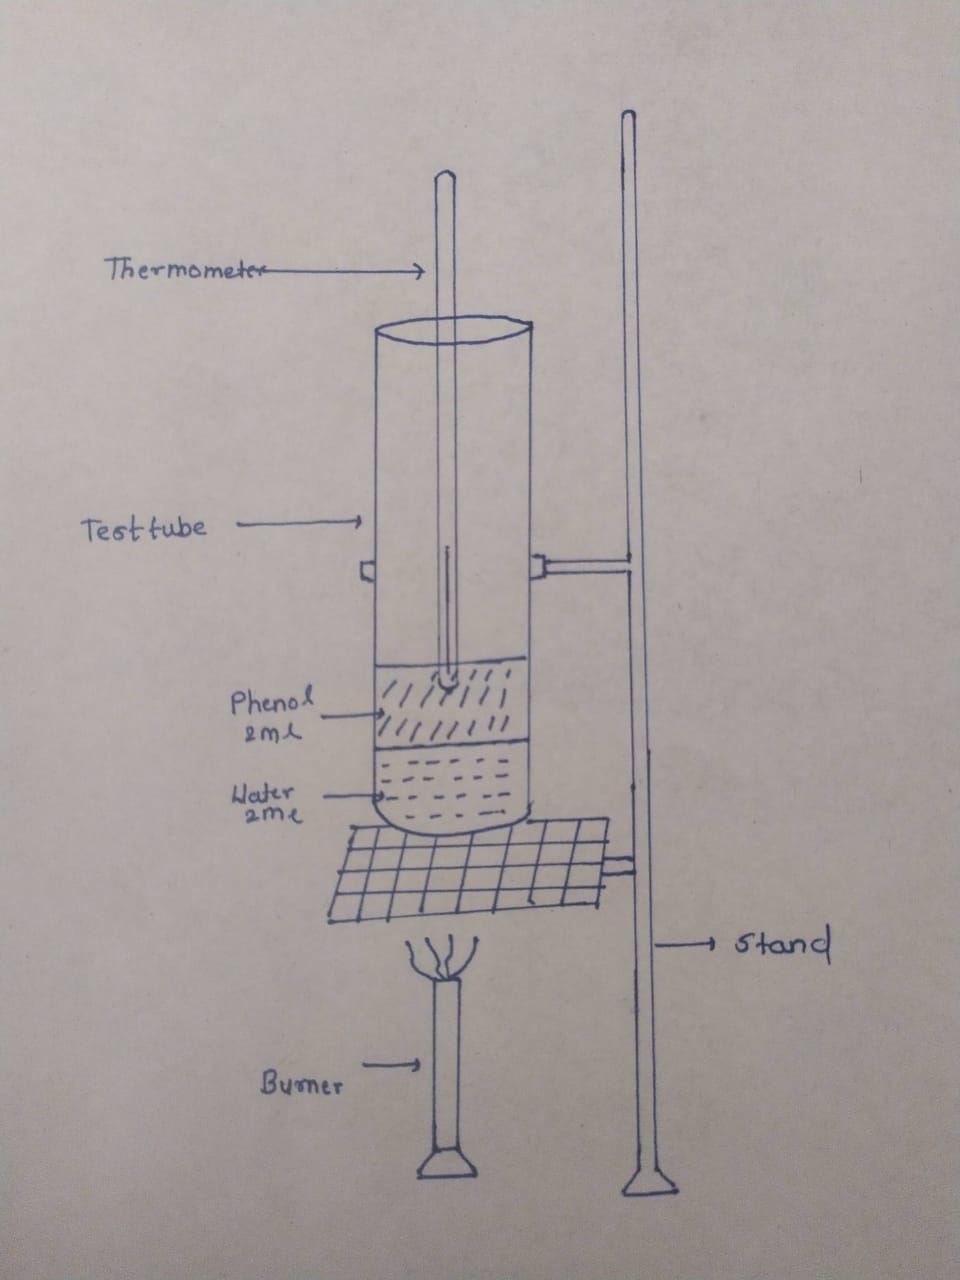 Thermometer
Test tube
Phenol
2ml
Water
2ml
Stand
Burner